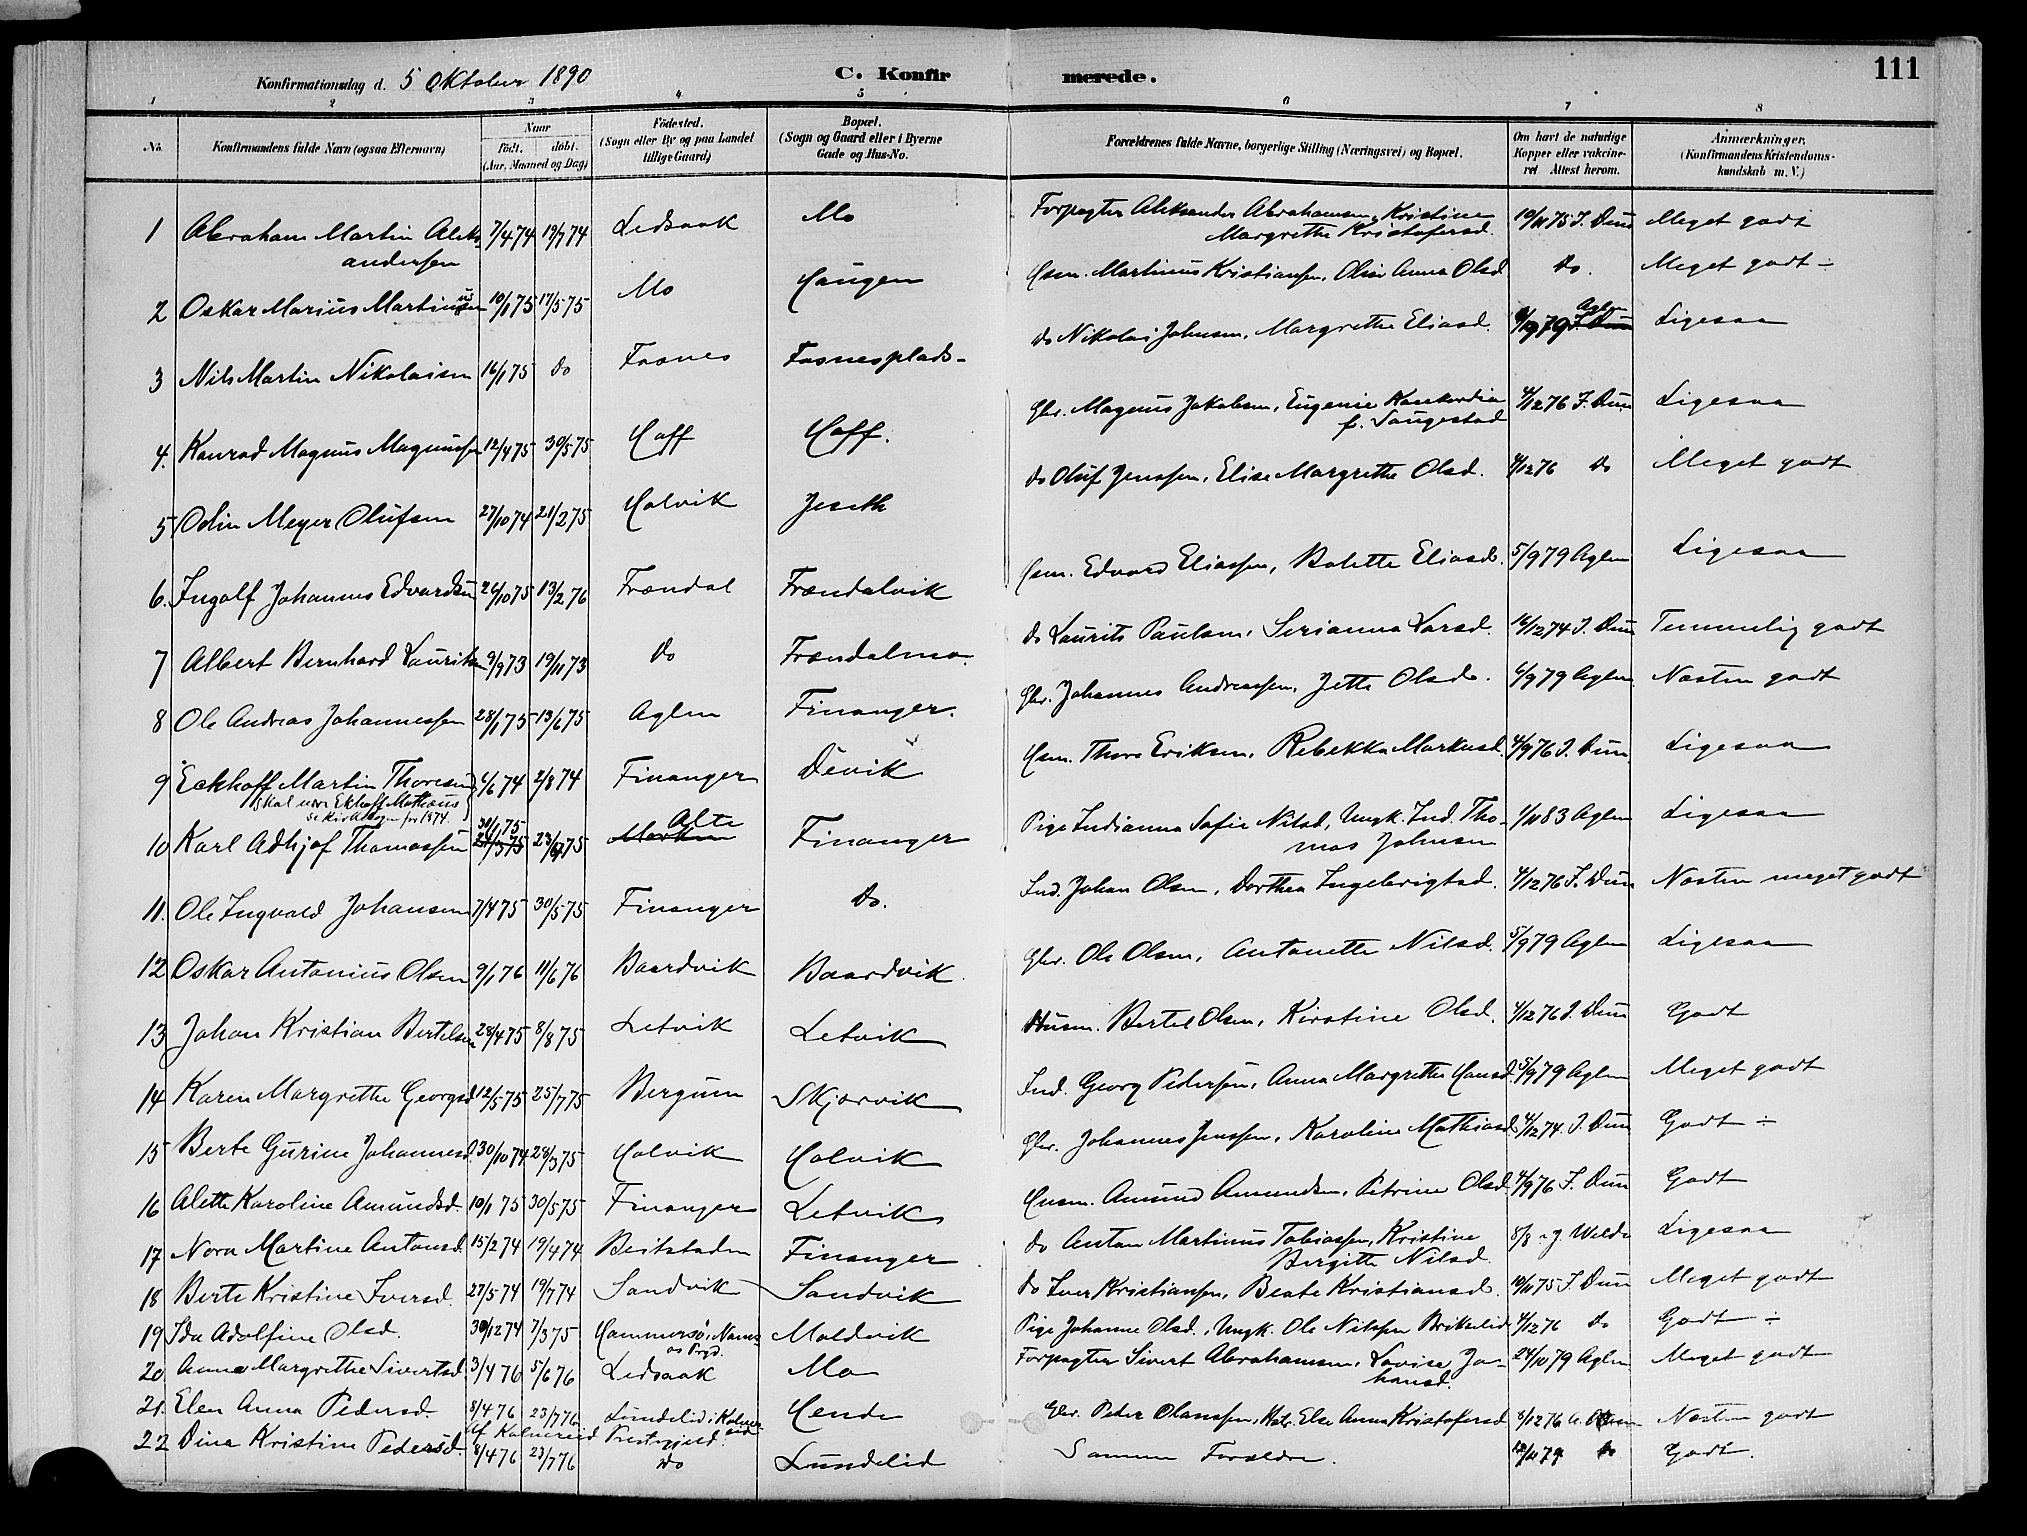 111
Konfirmationsdag d. 5 Oktober 1890 C. Konfirmerede.
1 2 3 4 5 6 7 8
No. Konfirmandens fulde Navn (ogsaa Efternavn) Naar født. døbt. (Aar, Maaned og Dag) Fødested. (Sogn eller By og paa Landet tillige Gaard) Bopæl. (Sogn og Gaard eller i Byerne Gade og Hus-No. Forældrenes fulde Navne, borgerlige Stilling (Næringsvei) og Bopæl. Om havt de naturlige Kopper eller vakcineret Attest herom. Anmærkninger. (Konfirmandens Kristendomskundskab m. V.)
1 Abraham Martin Aleksandersen 7/4 74 19/7 74 Ledsaak Mo Forpagter Aleksander Abrahamsen, Kristine Margrethe Kristofersd. 10/11 75 J. Dun Meget godt
2 Oskar Marius Martinussen 10/1 75 17/5 75 Mo Haugen Hsm. Martinus Kristiansen, Oline Anna Olsd do. Meget godt -
3 Nils Martin Nikolaisen 16/1 75 do Fosnes Fosnesplads- do Nikolai Johnsen, Margrethe Eliasd. 79 Aglen Ligesaa
4. Konrad Magnus Magnussen 12/4 75 30/5 75 Hoff Hoff. Gbr. Magnus Jakobsen, Eugenie Konkordia f. Saugestad 4/12 76 J. Dun Ligesaa
5 Odin Meyer Olufsen 27/10 74 21/2 75 Holvik Jeseth do Oluf Jenssen, Elise Margrethe Olsd. 4/12 76 do Meget godt
6. Ingolf Johannes Edvardsen 26/10 75 13/2 76 Frændal Frændalvik Hsm. Edvard Eliassen, Bolette Eliasd. 5/9 79 Aglen Ligesaa
7 Albert Bernhard Lauritsen 9/9 73 19/11 73 do Frændalmo. do Laurits Paulsen, Serianna Larsd. 16/12 74 J. Dun Temmelig godt
8 Ole Andreas Johannessen 28/1 75 13/6 75 Aglen Finanger. Gbr. Johannes Andreassen, Jette Olsd. 6/9 79 Aglen Næsten godt
9 Eckhoff Martin Thoresen 6/6 74 2/8 74 Finanger Devik Hsm. Thore Eriksen, Rebekka Markusd. 4/9 76 J. Dun Ligesaa
skal være Ekhoff Mathæus se Kirkebogen for 1874.
10 Karl Adhjof Thomassen 30/1 75 23/ 75 Alte Finanger Pige Indianna Sofie Nilsd, Ungk. Ind. Thomas Johnsen 1/11 83 Aglen Ligesaa
11. Ole Ingvald Johansen 7/4 75 30/5 75 Finanger do. Ind. Johan Olsen, Dorthea Ingebrigtsd. 4/12 76 J. Dun Næsten meget godt
12 Oskar Antonius Olsen 9/1 76 11/6 76 Baardvik Baardvik Gbr. Ole Olsen, Antonette Nilsd. 5/9 79 Aglen Ligesaa
13 Johan Kristian Bertelsen 28/4 75 8/8 75 Letvik Letvik Husm. Bertel Olsen, Kirstine Olsd. 4/12 76 J. Dun Godt
14 Karen Margrethe Georgsd 12/5 75 25/7 75 Bergum Skjærvik Ind. Georg Pedersen, Anna Margrethe Hansd. 5/9 79 Aglen Meget godt
15 Berte Gurine Johannesd. 30/10 74 28/3 75 Holvik Holvik Gbr. Johannes Jenssen, Karoline Mathiasd 4/12 74. J. Dun Godt ÷
16 Alette Karoline Amundsd. 10/1 75 30/5 75 Finanger Letvik Husm. Amund Amundsen, Petrine Olsd. 4/9 76 J. Dun Godt
17 Nora Martine Antonsd. 15/2 74 19/4 74 Beitstaden Finanger do Anton Martinus Tobiassen, Kristine Birgitte Nilsd. Ligesaa
18 Berte Kristine Iversd. 27/5 74 19/7 74 Sandvik Sandvik do Iver Kristiansen, Beate Kristiansd. 10/11 75 J. Dun Meget godt
19 Ida Adolfine Olsd. 30/12 74 7/3 75 Hammersø, Namsos Prgd. Moldvik Pige Johanne Olsd., Ungk. Ole Nilssen 4/12 76 do Godt ÷
20 Anna Margrethe Sivertsd. 3/4 76 5/6 76 Ledsaak Mo Forpagter Sivert Abrahamsen, Lovise Johansd. 24/10 79 Aglen Meget godt
21. Elen Anna Pedersd. 8/4 76 23/7 76 Lundelid i Kolvereid Prestegjeld. Gbr. Peder Olanssen, Else Anna Kristofersd 8/12 76 Næsten godt
22 Dina Kristine Pedersd. 8/4 76 23/7 76 do Lundelid Samme Forældre. do Godt.